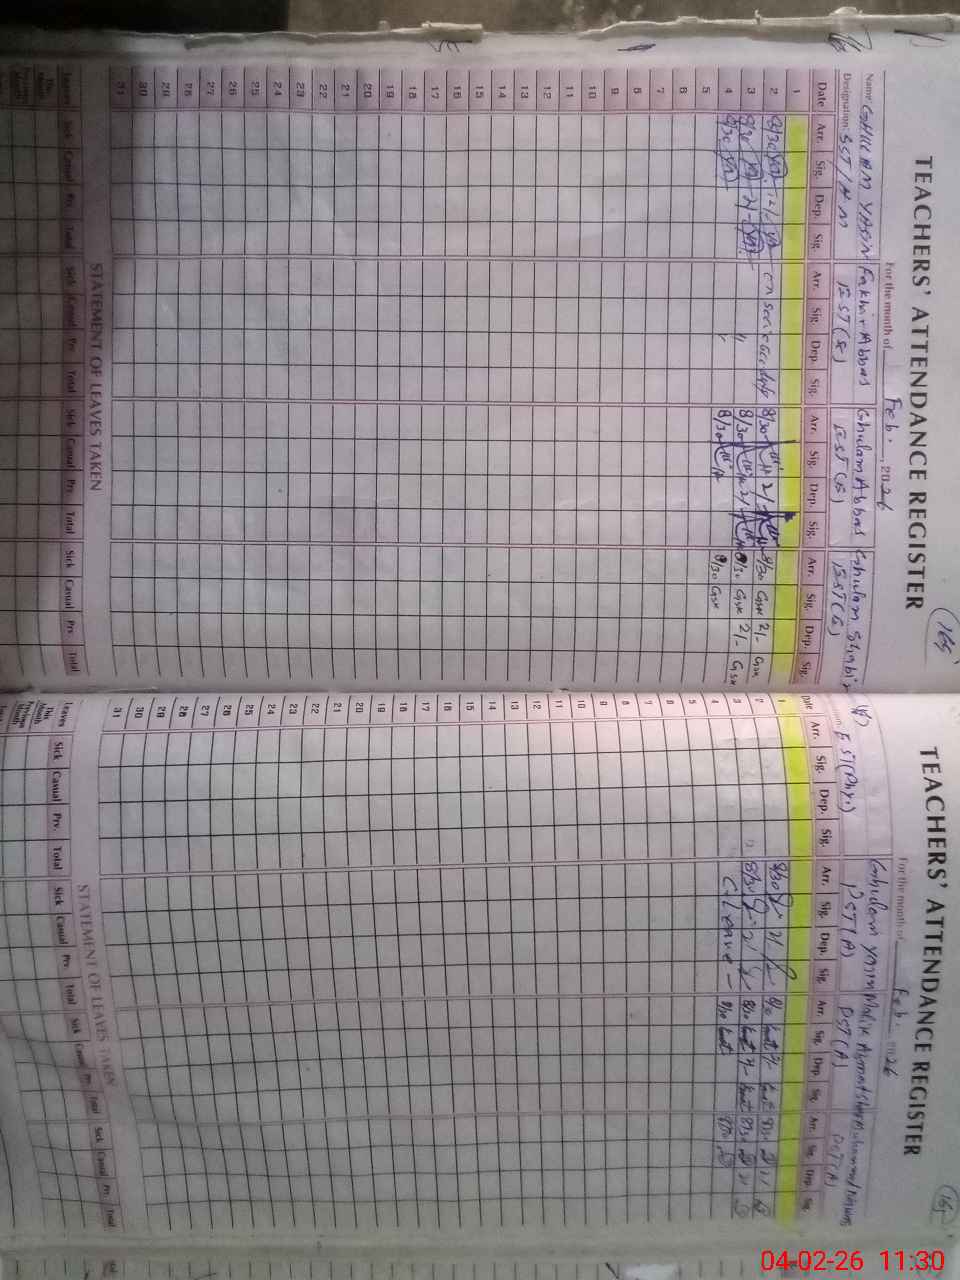 TEACHERS' ATTENDANCE REGISTER
165
For the month of Feb. 2026
Name GHULAM YASIN Fakhir Abbas Ghulam Abbas Ghulam Shabir
Designation SST/HM EST(S) EST(G) EST(G)
Date Arr. Sig. Dep. Sig. Arr. Sig. Dep. Sig. Arr. Sig. Dep. Sig. Arr. Sig. Dep. Sig.
1
2 8/30 12/ 8/30 2/- 8/30 GSK 2/- GSK
3 8/30 2/- " 8/30 2/- 8/30 GSK 2/- GSK
4 8/30 8/30 8/30 GSK
5
6
7
8
9
10
11
12
13
14
15
16
17
18
19
20
21
22
23
24
25
26
27
28
29
30
31
STATEMENT OF LEAVES TAKEN
Leaves Sick Casual Prv. Total Sick Casual Prv. Total Sick Casual Prv. Total Sick Casual Prv. Total
This Month
Previous Month
TEACHERS' ATTENDANCE REGISTER
165
For the month of Feb. 2026
Ghulam Yasin Malik Ahmad Sher Muhammad Nawaz
EST(Phy.) PST(A) PST(A) PST(A)
Date Arr. Sig. Dep. Sig. Arr. Sig. Dep. Sig. Arr. Sig. Dep. Sig. Arr. Sig. Dep. Sig.
1
2 8/30 2/ 8/30 2/- 8/30
3 8/30 2/ 8/30 2/- 8/30
4 C/Leave - 8/30 8/30
5
6
7
8
9
10
11
12
13
14
15
16
17
18
19
20
21
22
23
24
25
26
27
28
29
30
31
STATEMENT OF LEAVES TAKEN
Leaves Sick Casual Prv. Total Sick Casual Prv. Total Sick Casual Prv. Total Sick Casual Prv. Total
This Month
Previous Month
04-02-26 11:30